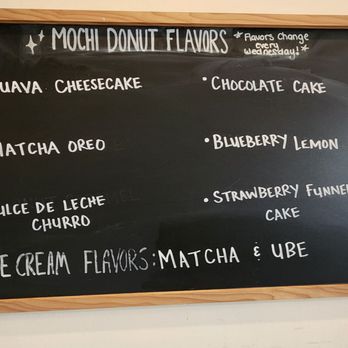 MOCHI DONUT FLAVORS
*Flavors Change every Wednesday!*
UAVA CHEESECAKE
• CHOCOLATE CAKE
MATCHA OREO
• BLUEBERRY LEMON
ULCE DE LECHE
CHURRO
• STRAWBERRY FUNNEL
CAKE
E CREAM FLAVORS: MATCHA & UBE